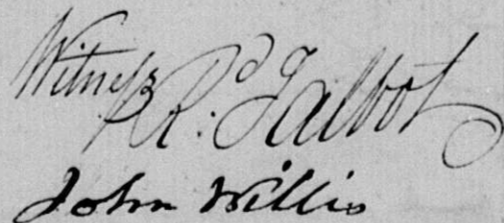 Witness Rd: Talbot
John Willis